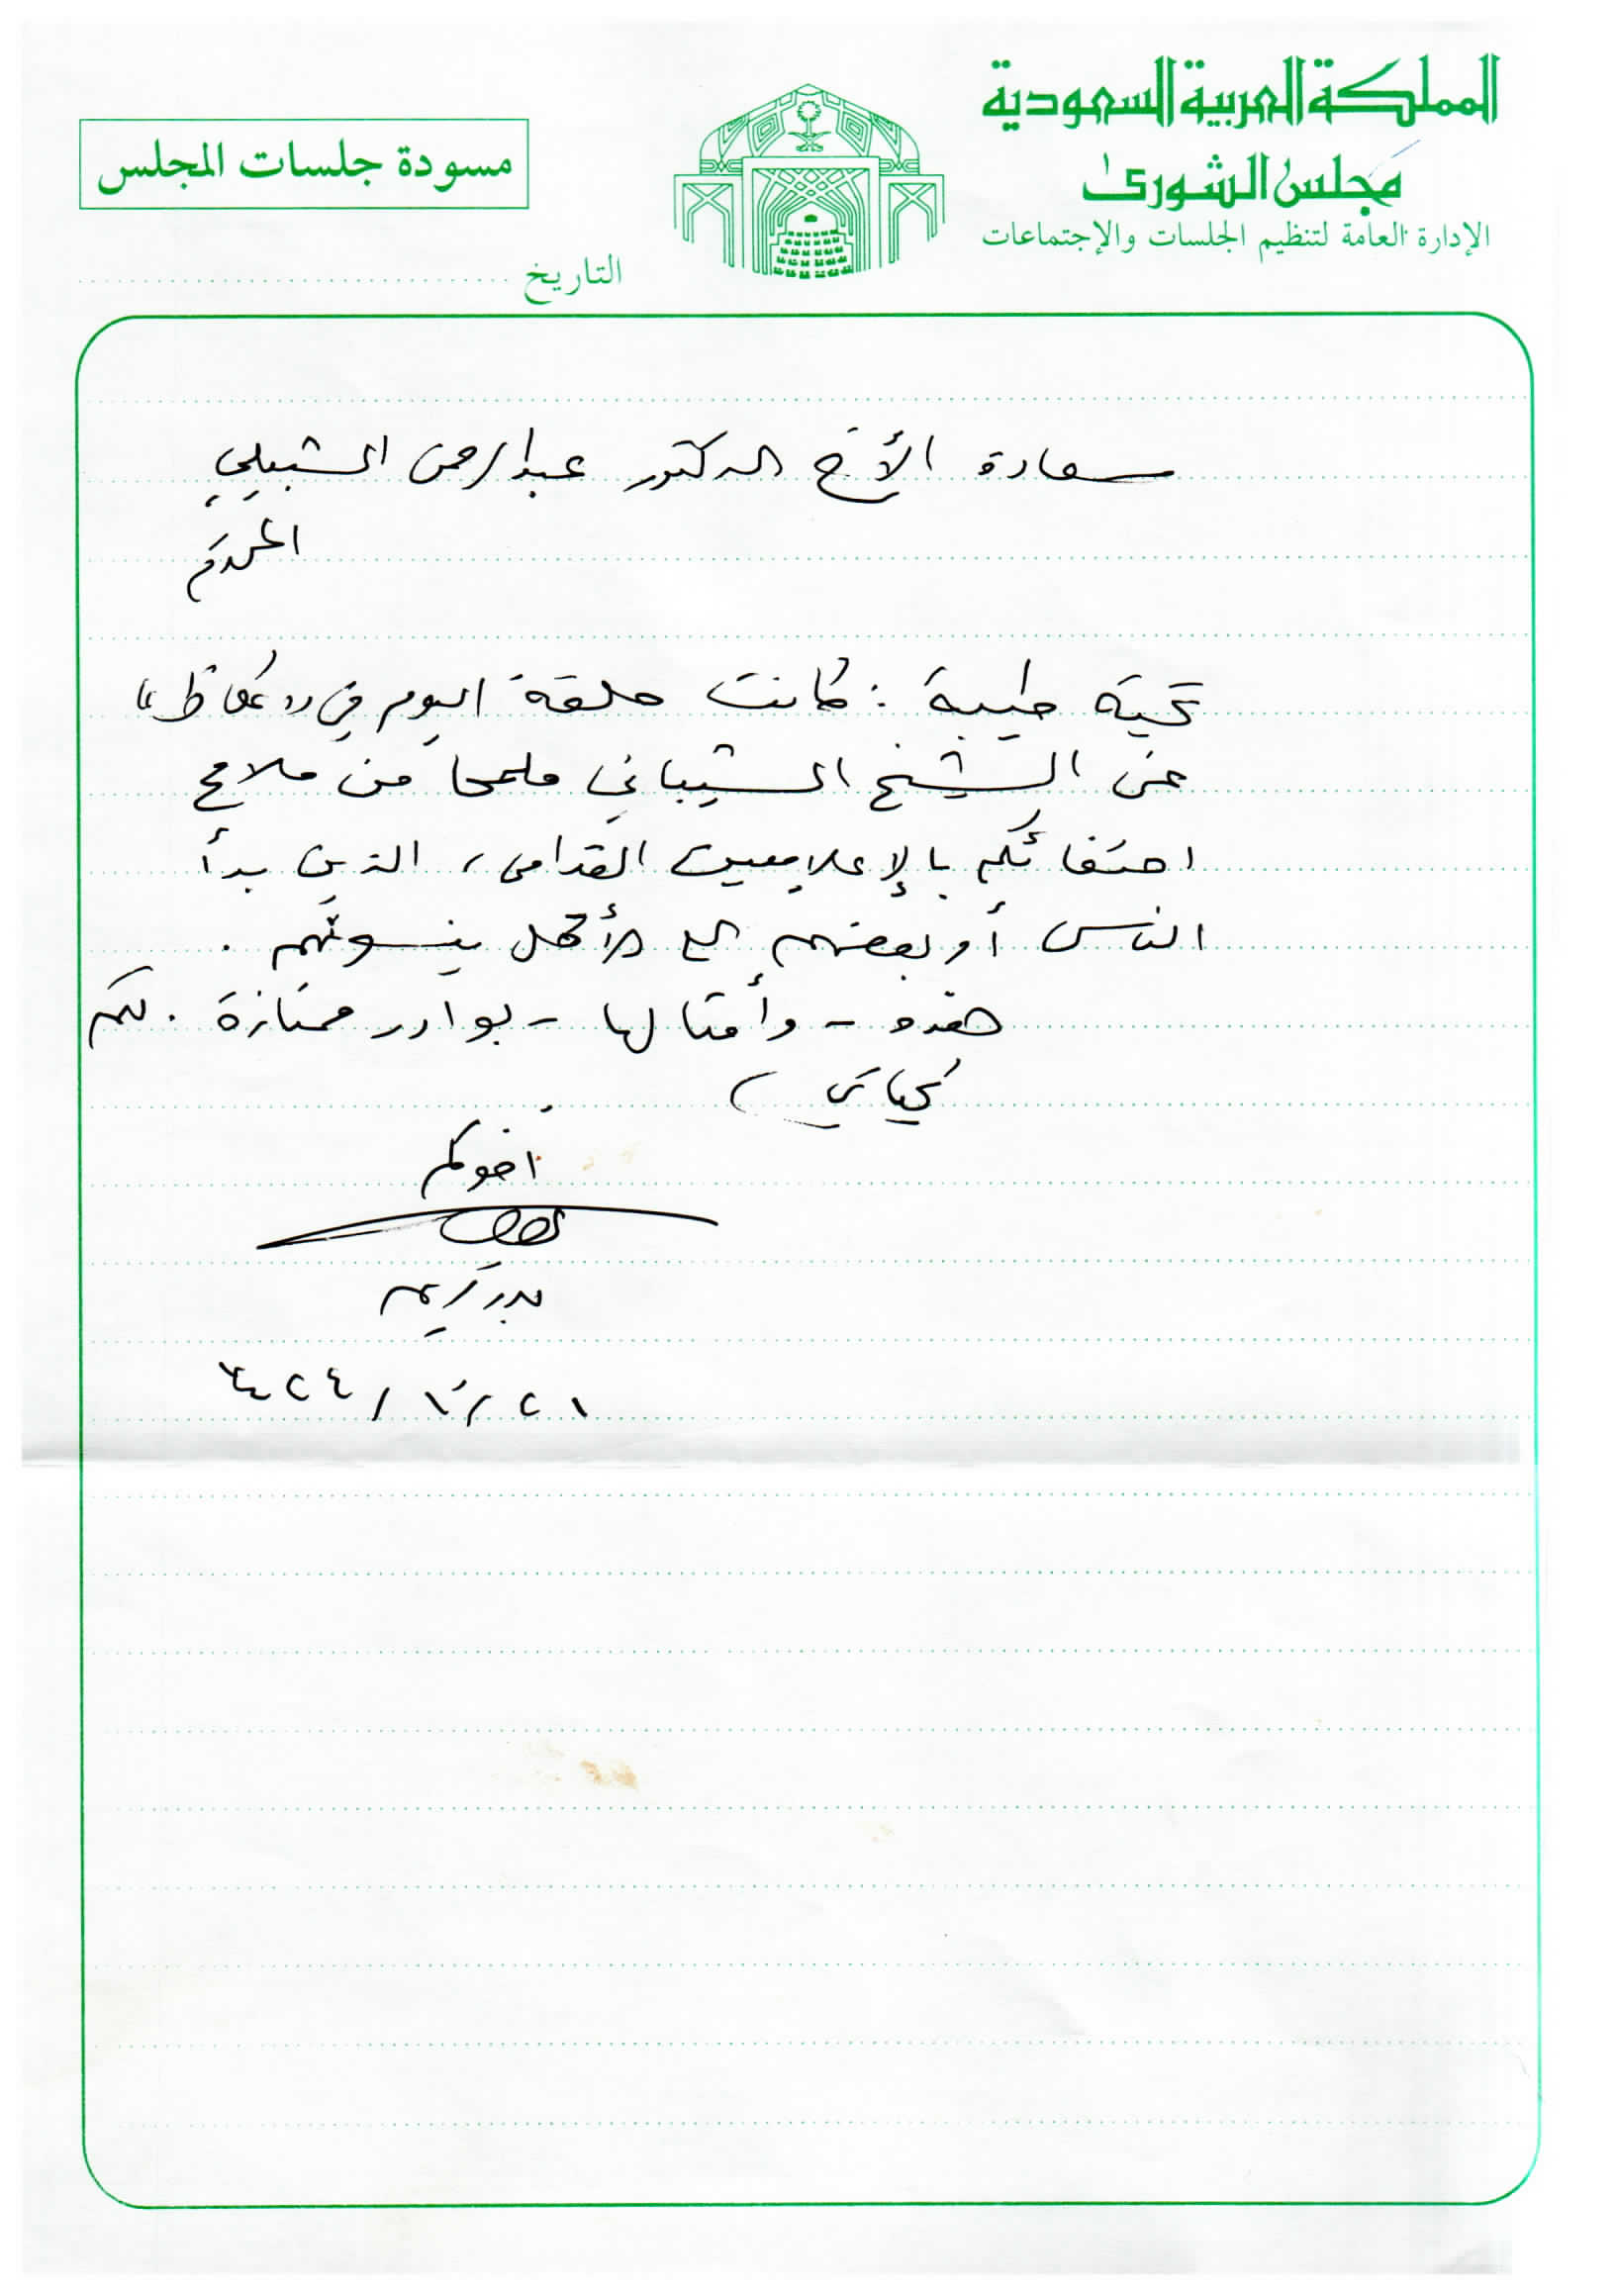 المملكة العربية السعودية
مجلس الشورى
الإدارة العامة لتنظيم الجلسات والإجتماعات
مسودة جلسات المجلس
التاريخ
سعادة الأخ الدكتور عبدالرحمن الشبيلي
المحترم
تحية طيبة : كانت حلقة اليوم في "عكاظ"
عن الشيخ الشيباني ملمحاً من ملامح
احتفائكم بالإعلاميين القدامى، الذين بدأ
الناس أو بعضهم على الأقل ينسونهم .
هذه - وأمثالها - بوادر ممتازة . لكم
تحياتي
أخوكم
بدر كريم